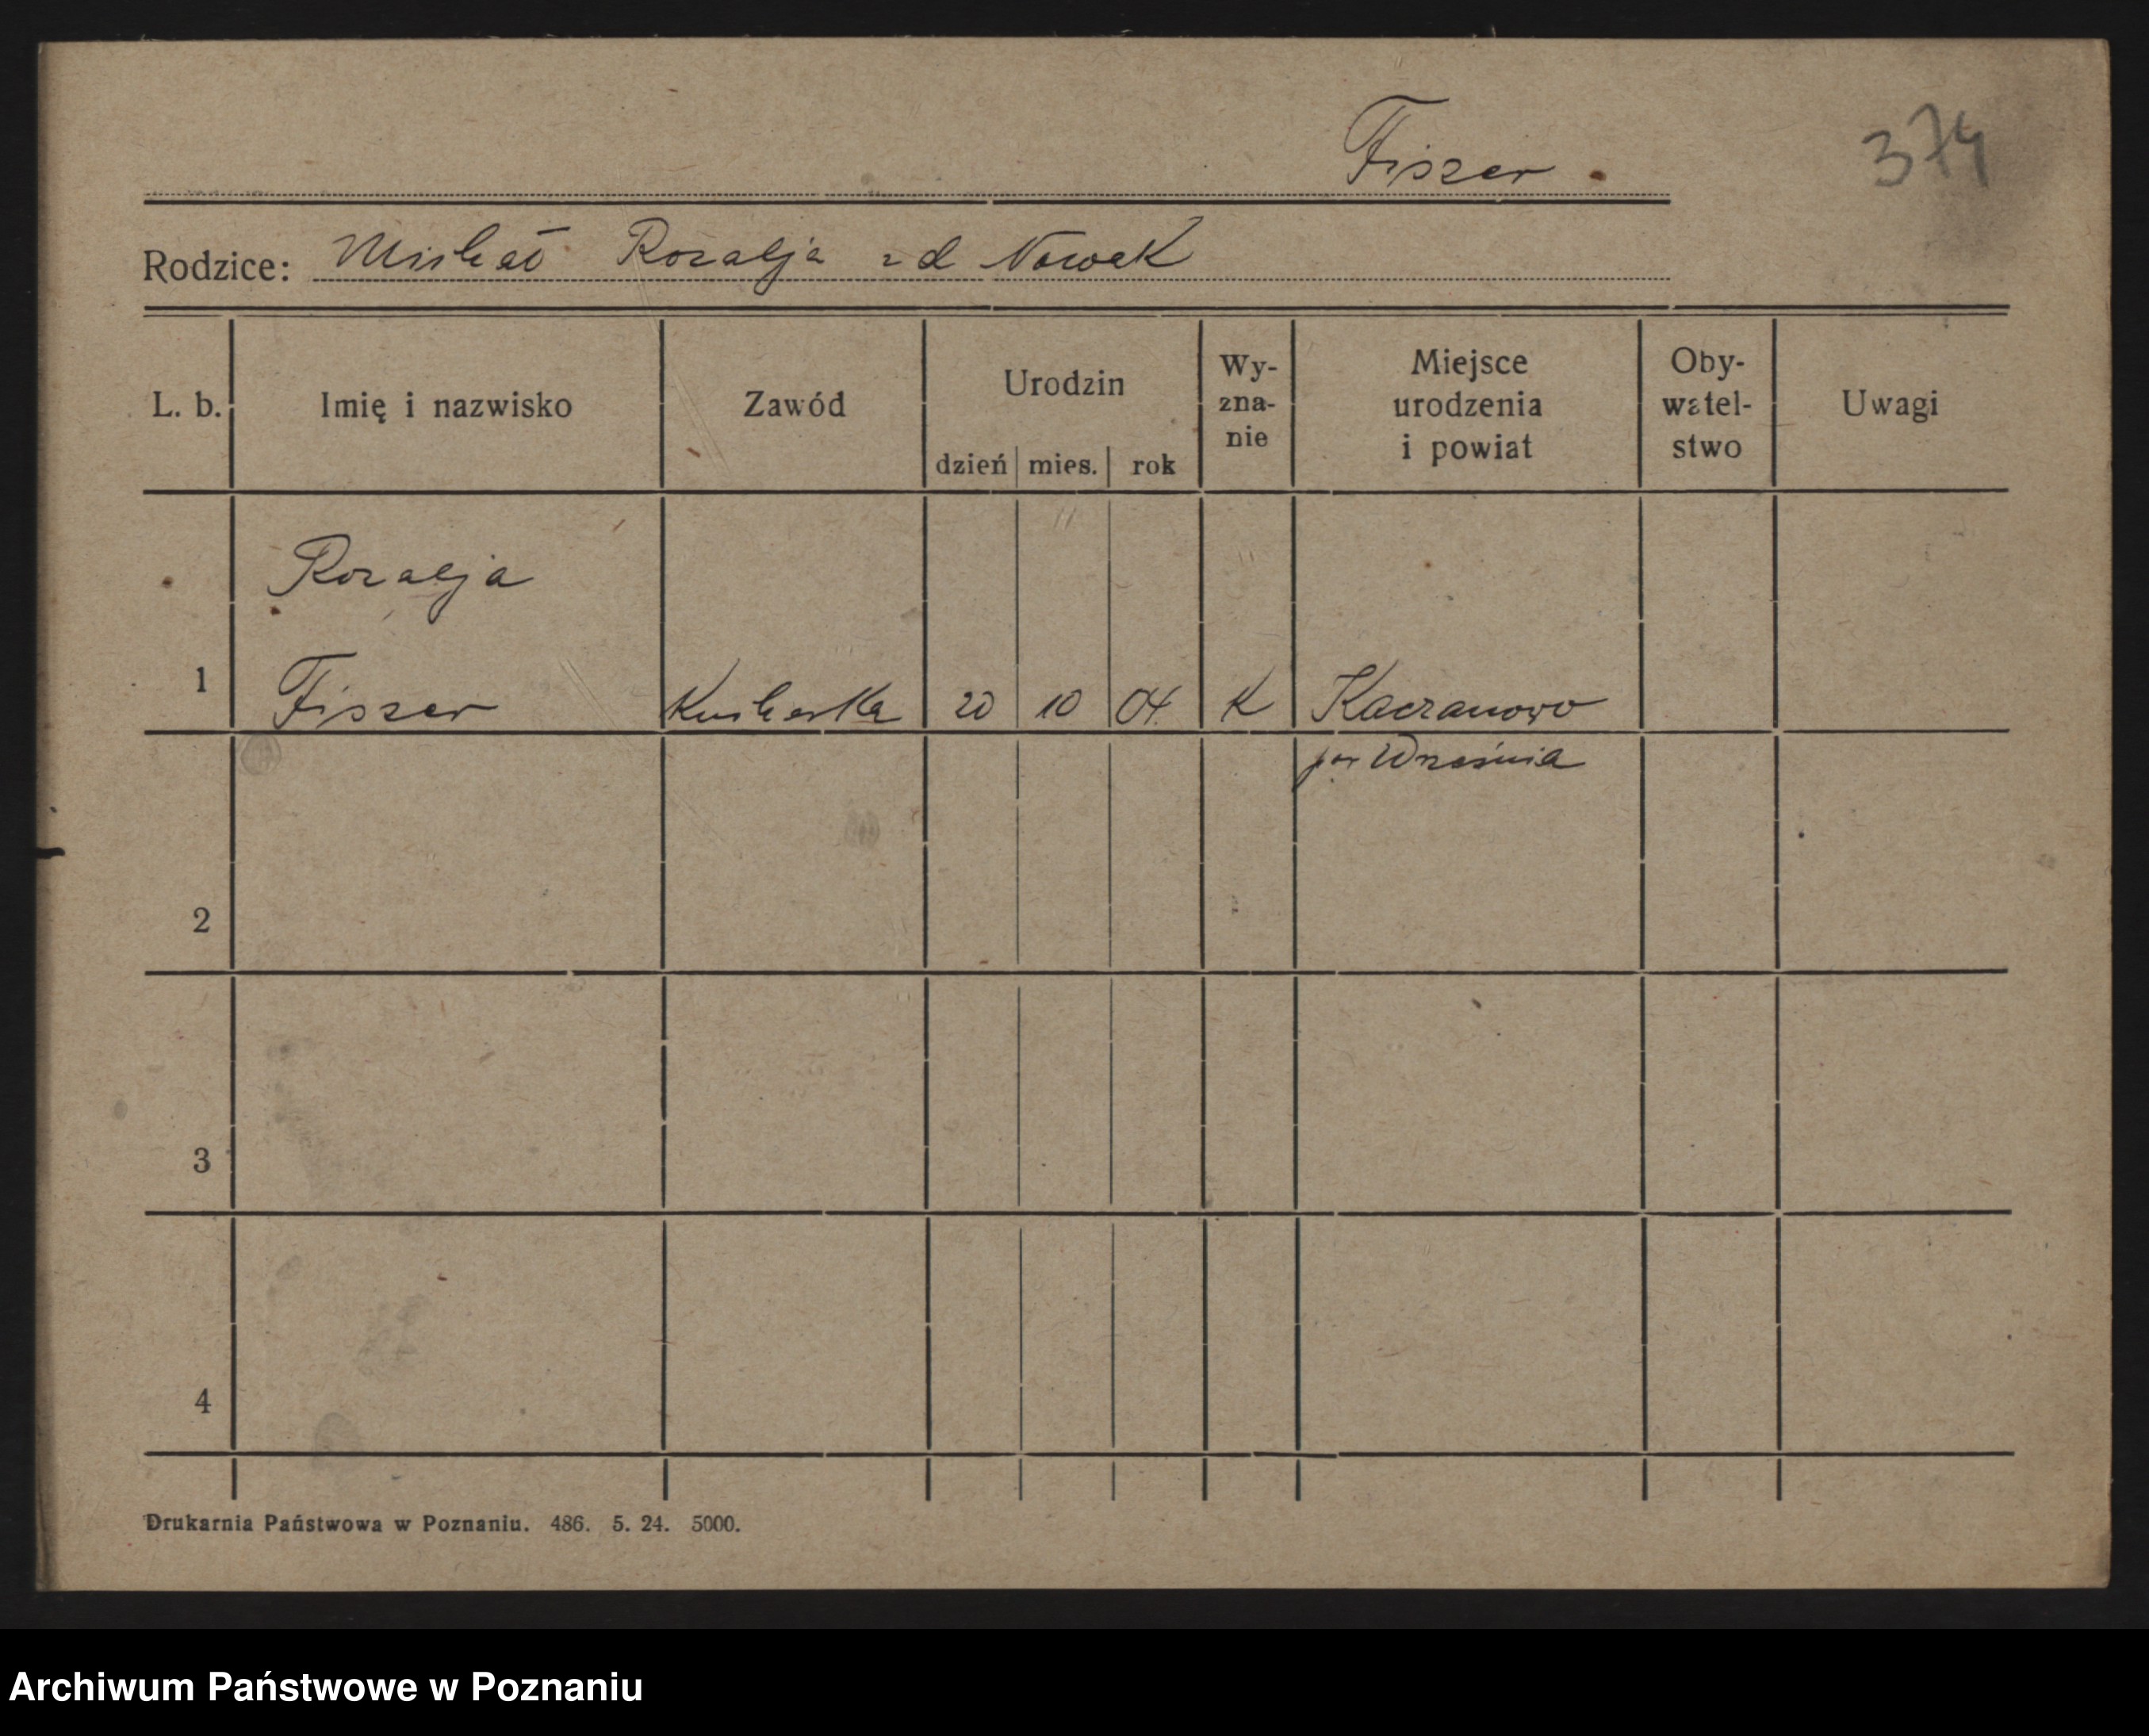 Fiszer
374
Rodzice: Michał Rozalja zd Nowak
L. b. Imię i nazwisko Zawód Urodzin dzień mies. rok Wy-zna-nie Miejsce urodzenia i powiat Oby-watel-stwo Uwagi
Rozalja
1 Fiszer Kucharka 20 10 04. K Kaczanowo
pow Września
2
3
4
Drukarnia Państwowa w Poznaniu. 486. 5. 24. 5000.
Archiwum Państwowe w Poznaniu